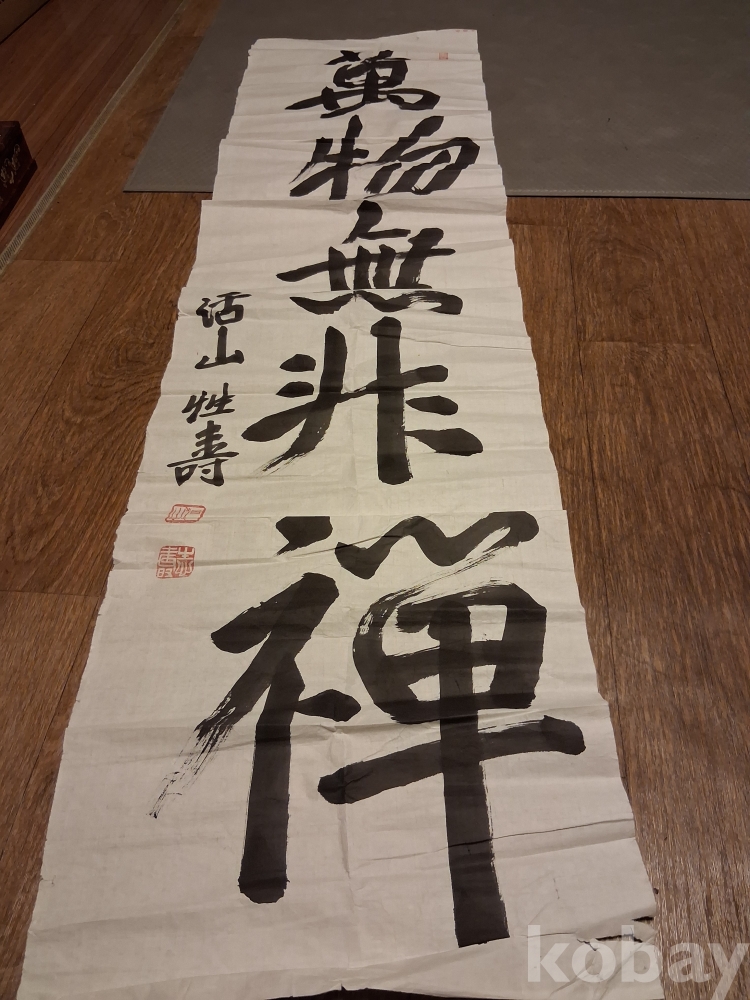 萬物無非禪
活山 性壽
kobay